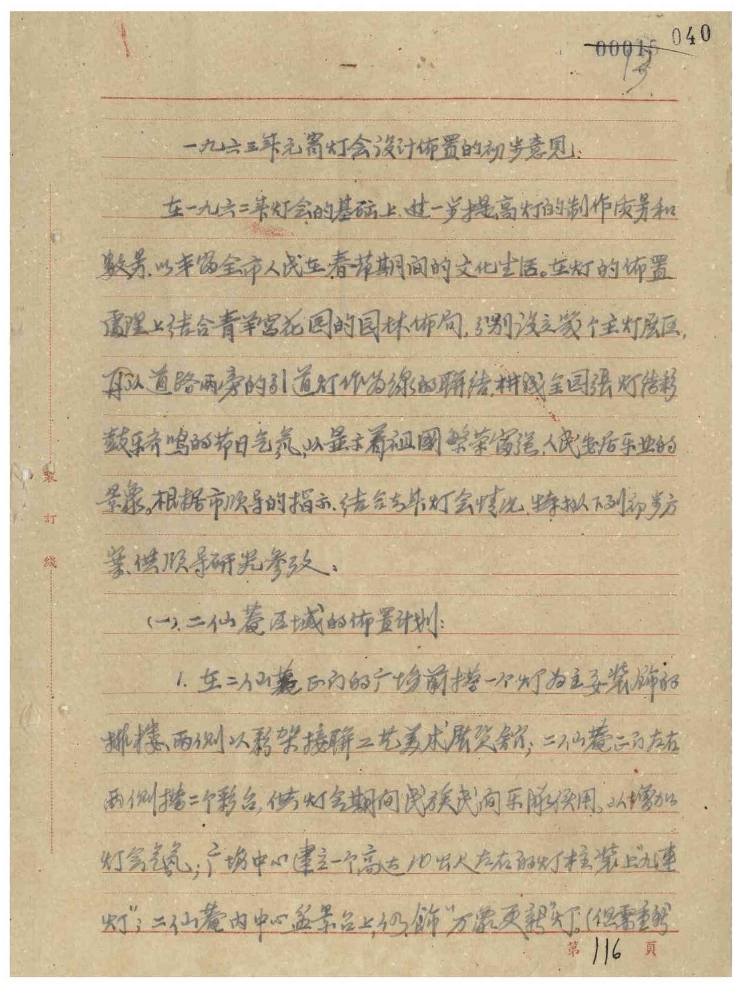 00015 040
13
一九六三年元宵灯会设计佈置的初步意见:
在一九六二年灯会的基础上,进一步提高灯的制作质量和
数量,以丰富全市人民在春节期间的文化生活。在灯的佈置
处理上结合青羊宫花园的园林佈局,分别设立几个主灯展区,
再以道路两旁的引道灯作为线的联结,构成全园张灯结彩
鼓乐齐鸣的节日气氛,以显示着祖國繁荣富强,人民安居乐业的
景象。根据市领导的指示,结合去年灯会情况,特拟下列初步方
案,供领导研究参改:
(一).二仙菴区域的佈置计划:
1.在二仙菴正门的广场前搭一个灯为主要装饰的
排楼,两侧以彩架接联工艺美术展览舘;二仙菴正门左右
两侧搭二个彩台,供灯会期间民族民间乐队使用,以增加
灯会气氛;广场中心建立一个高达10公尺左右的灯柱装上"九连
灯";二仙菴内中心盆景台上,仍饰"万象更新"灯。(但需重新
装订线
第116頁